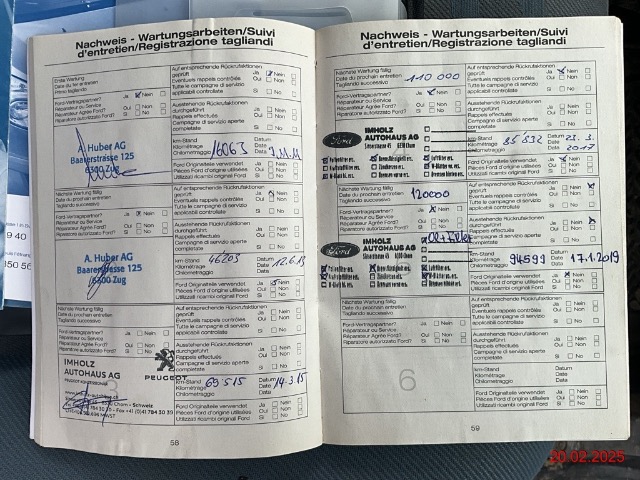 Nachweis - Wartungsarbeiten/Suivi
d'entretien/Registrazione tagliandi
Erste Wartung
Date du 1er entretien
Primo tagliando
Auf entsprechende Rückrufaktionen
geprüft Ja Nein
Eventuels rappels contrôlés Oui Non
Tutte le campagne di servizio
applicabili controllate Si No
Ford-Vertragspartner? Ja Nein
Réparateur ou Service Oui Non
Réparatore Agrée Ford?
Riparatore autorizzato Ford? Si No
Ausstehende Rückrufaktionen
durchgeführt Ja Nein
Rappels effectués Oui Non
Campagne di servizio aperte
completate Si No
A. Huber AG
Baarerstrasse 125
6300 Zug
km-Stand
Kilométrage
Chilometraggio
16063
Datum
Date
Data
Ford Originalteile verwendet Ja Nein
Pièces Ford d'origine utilisées Oui Non
Utilizzati ricambi original Ford Si No
Nächste Wartung fällig
Date du prochain entretien
Tagliando successivo
Auf entsprechende Rückrufaktionen
geprüft Ja Nein
Eventuels rappels contrôlés Oui Non
Tutte le campagne di servizio
applicabili controllate Si No
Ford-Vertragspartner? Ja Nein
Réparateur ou Service Oui Non
Réparatore Agrée Ford?
Riparatore autorizzato Ford? Si No
Ausstehende Rückrufaktionen
durchgeführt Ja Nein
Rappels effectués Oui Non
Campagne di servizio aperte
completate Si No
A. Huber AG
Baarerstrasse 125
6300 Zug
km-Stand
Kilométrage
Chilometraggio
46203
Datum
Date
Data
12.6.13
Ford Originalteile verwendet Ja Nein
Pièces Ford d'origine utilisées Oui Non
Utilizzati ricambi original Ford Si No
Nächste Wartung fällig
Date du prochain entretien
Tagliando successivo
Auf entsprechende Rückrufaktionen
geprüft Ja Nein
Eventuels rappels contrôlés Oui Non
Tutte le campagne di servizio
applicabili controllate Si No
Ford-Vertragspartner? Ja Nein
Réparateur ou Service Oui Non
Réparatore Agrée Ford?
Riparatore autorizzato Ford? Si No
Ausstehende Rückrufaktionen
durchgeführt Ja Nein
Rappels effectués Oui Non
Campagne di servizio aperte
completate Si No
IMHOLZ
AUTOHAUS AG
PEUGEOT
km-Stand
Kilométrage
Chilometraggio
69515
Datum
Date
Data
14.3.15
Ford Originalteile verwendet Ja Nein
Pièces Ford d'origine utilisées Oui Non
Utilizzati ricambi original Ford Si No
58
Nachweis - Wartungsarbeiten/Suivi
d'entretien/Registrazione tagliandi
Nächste Wartung fällig
Date du prochain entretien
Tagliando successivo
110 000
Auf entsprechende Rückrufaktionen
geprüft Ja Nein
Eventuels rappels contrôlés Oui Non
Tutte le campagne di servizio
applicabili controllate Si No
Ford-Vertragspartner? Ja Nein
Réparateur ou Service Oui Non
Réparatore Agrée Ford?
Riparatore autorizzato Ford? Si No
Ausstehende Rückrufaktionen
durchgeführt Ja Nein
Rappels effectués Oui Non
Campagne di servizio aperte
completate Si No
Ford
IMHOLZ
AUTOHAUS AG
km-Stand
Kilométrage
Chilometraggio
85'532
Datum
Date
Data
23.3.
2017
Ford Originalteile verwendet Ja Nein
Pièces Ford d'origine utilisées Oui Non
Utilizzati ricambi original Ford Si No
Nächste Wartung fällig
Date du prochain entretien
Tagliando successivo
120000
Auf entsprechende Rückrufaktionen
geprüft Ja Nein
Eventuels rappels contrôlés Oui Non
Tutte le campagne di servizio
applicabili controllate Si No
Ford-Vertragspartner? Ja Nein
Réparateur ou Service Oui Non
Réparatore Agrée Ford?
Riparatore autorizzato Ford? Si No
Ausstehende Rückrufaktionen
durchgeführt Ja Nein
Rappels effectués Oui Non
Campagne di servizio aperte
completate Si No
Ford
IMHOLZ
AUTOHAUS AG
Öl+Filter
km-Stand
Kilométrage
Chilometraggio
94599
Datum
Date
Data
17.1.2019
Ford Originalteile verwendet Ja Nein
Pièces Ford d'origine utilisées Oui Non
Utilizzati ricambi original Ford Si No
Nächste Wartung fällig
Date du prochain entretien
Tagliando successivo
Auf entsprechende Rückrufaktionen
geprüft Ja Nein
Eventuels rappels contrôlés Oui Non
Tutte le campagne di servizio
applicabili controllate Si No
Ford-Vertragspartner? Ja Nein
Réparateur ou Service Oui Non
Réparatore Agrée Ford?
Riparatore autorizzato Ford? Si No
Ausstehende Rückrufaktionen
durchgeführt Ja Nein
Rappels effectués Oui Non
Campagne di servizio aperte
completate Si No
6
km-Stand
Kilométrage
Chilometraggio
Datum
Date
Data
Ford Originalteile verwendet Ja Nein
Pièces Ford d'origine utilisées Oui Non
Utilizzati ricambi original Ford Si No
59
20.02.2025